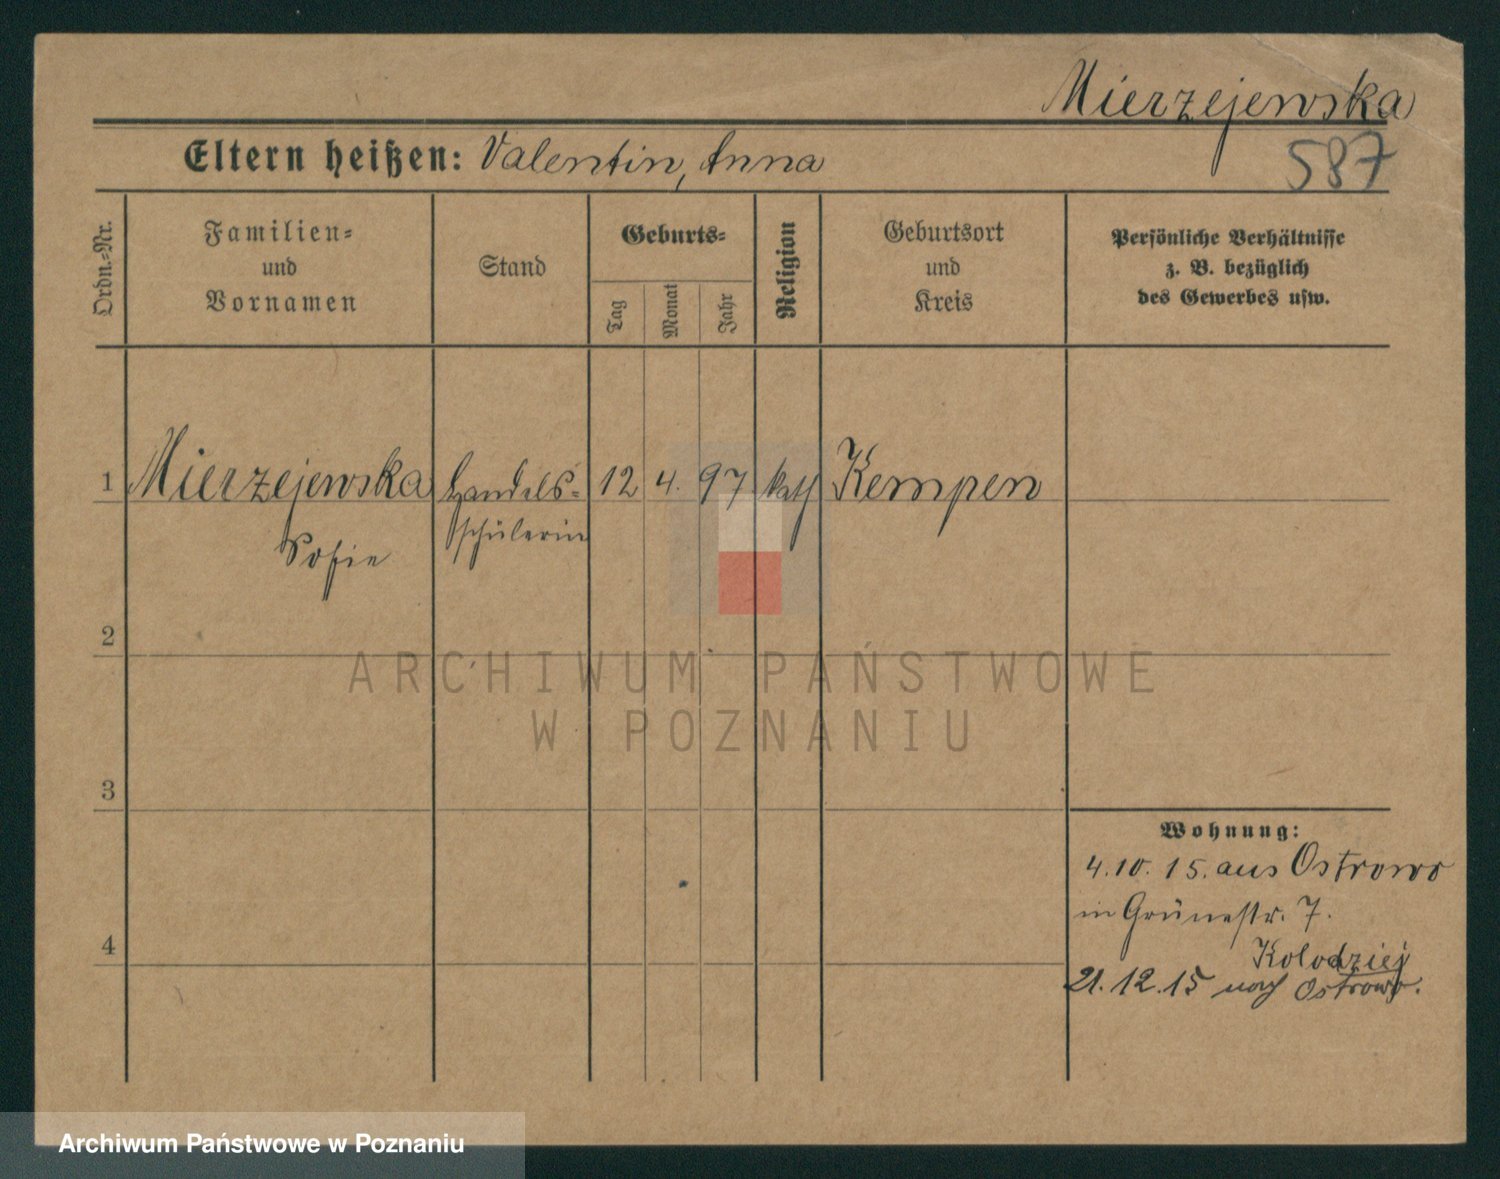 Mierzejewska
587
Eltern heißen: Valentin, Anna
Ordn.-Nr.
Familien-
und
Vornamen
Stand
Geburts-
Tag
Monat
Jahr
Religion
Geburtsort
und
Kreis
Persönliche Verhältnisse
z. B. bezüglich
des Gewerbes usw.
1 Mierzejewska Handels- 12 4. 97 kath Kempen
Sofie schülerin
2
ARCHIWUM PAŃSTWOWE
W POZNANIU
3
Wohnung:
4.10.15. aus Ostrowo
in Grünestr. 7.
4
Kolodziej
21.12.15 nach Ostrowo.
Archiwum Państwowe w Poznaniu